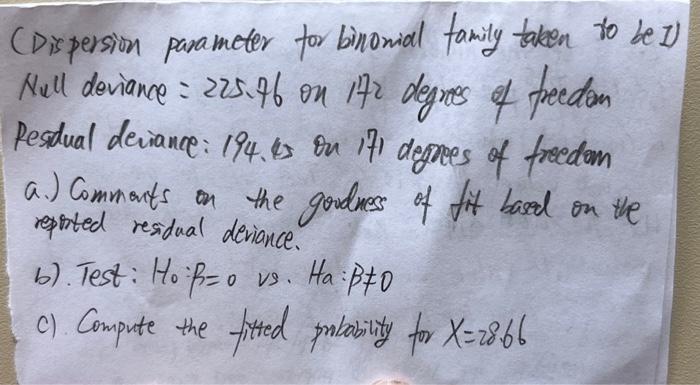 (Dispersion parameter for binomial family taken to be 1)
Null deviance = 225.76 on 172 degrees of freedom
Residual deviance: 194.45 on 171 degrees of freedom
a.) Comments on the goodness of fit based on the
reported residual deviance.
b). Test: Ho: β=0 vs. Ha: β≠0
c). Compute the fitted probability for X=28.66